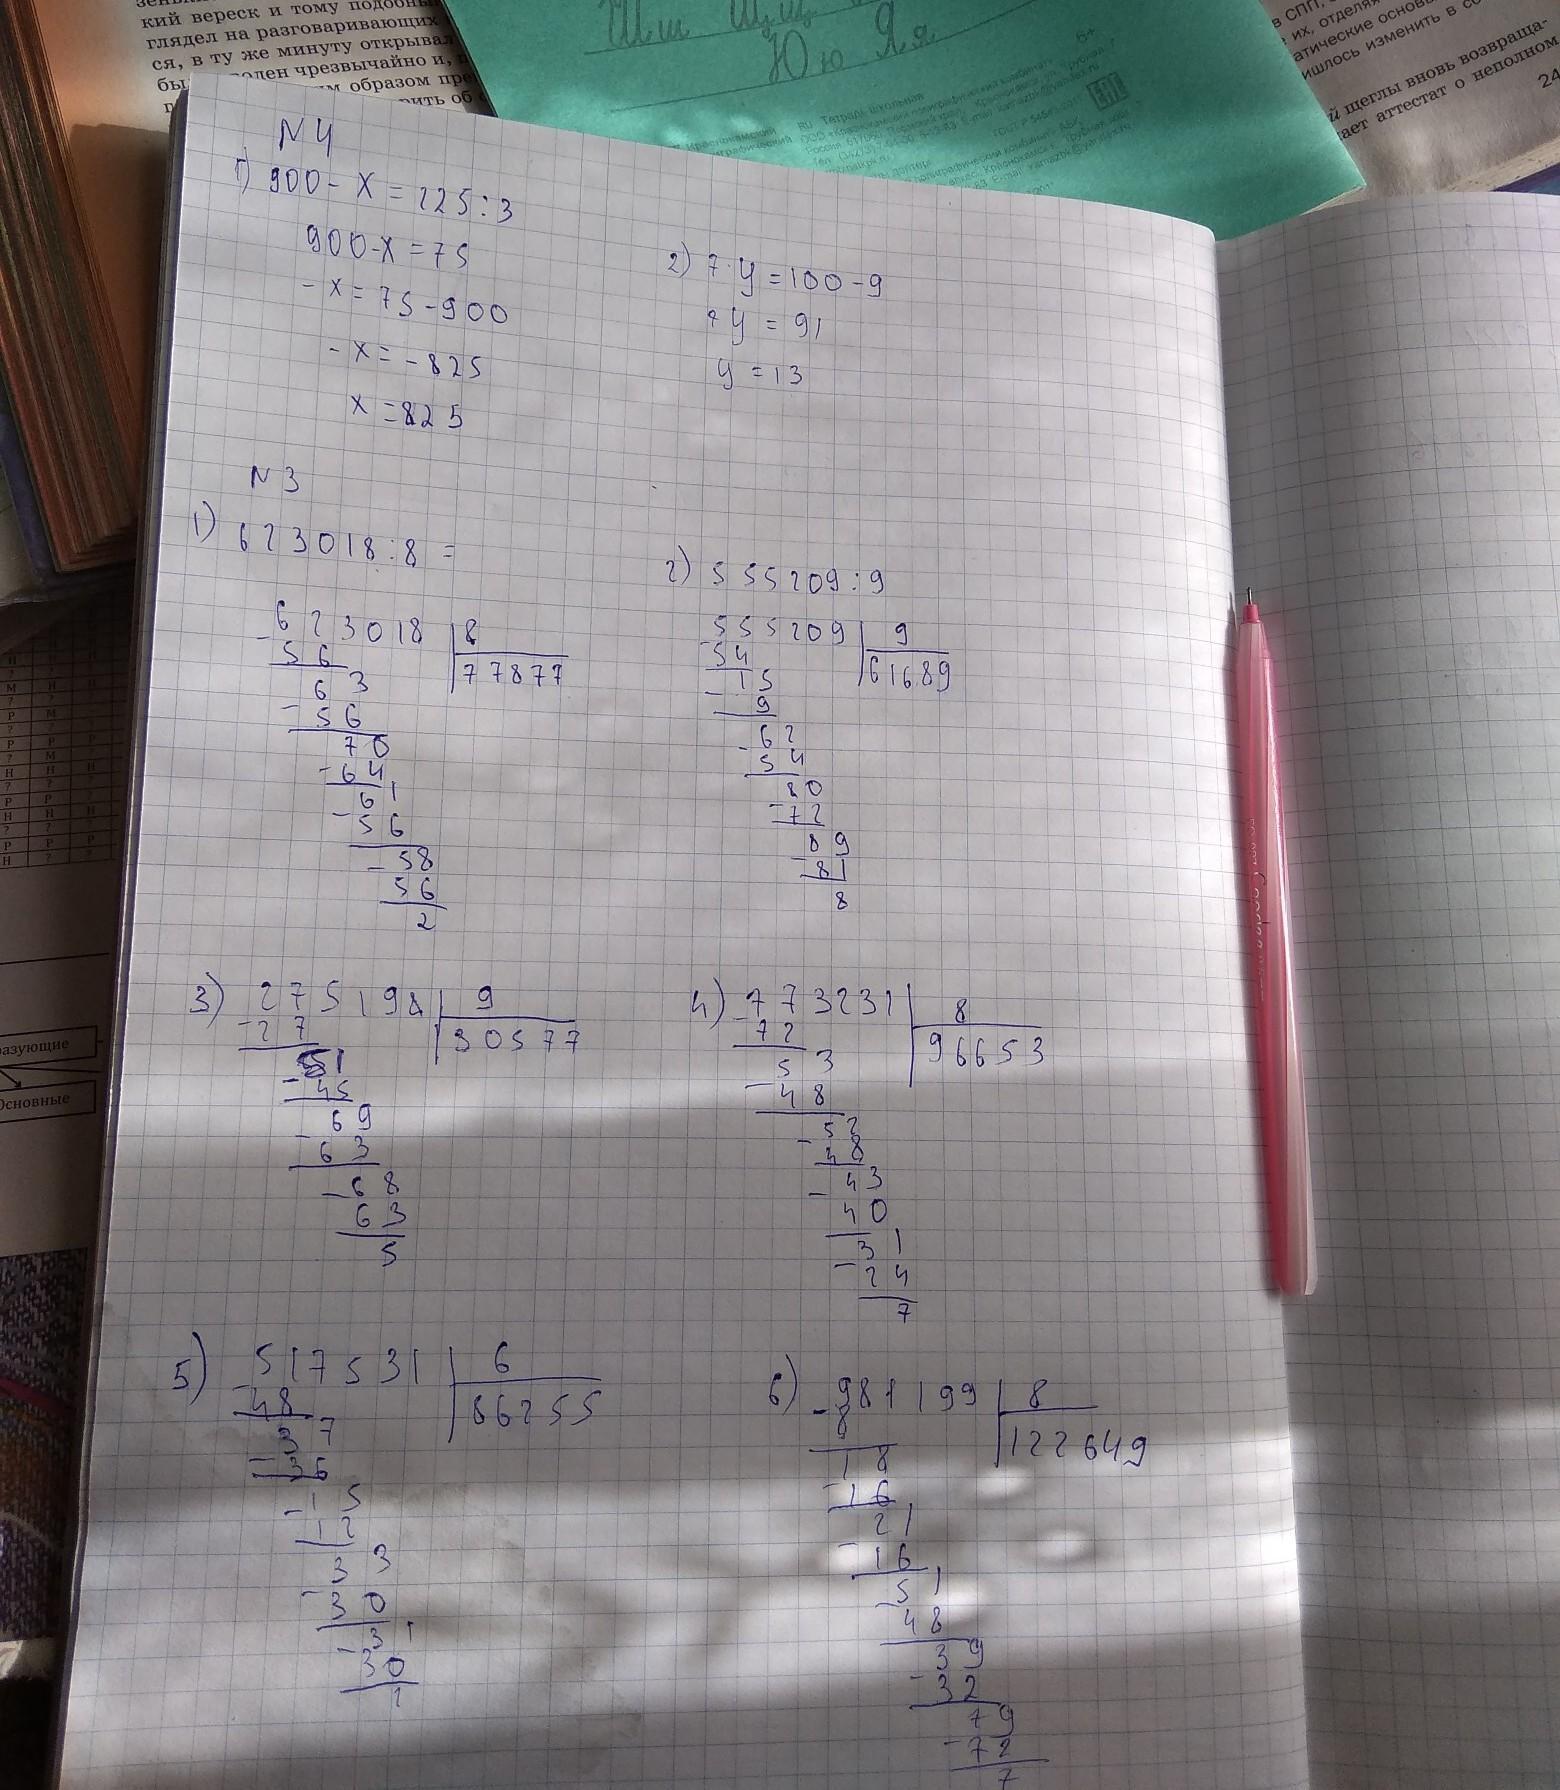 кий вереск и тому подобны
глядел на разговаривающих
ся, в ту же минуту открывал
чрезвычайно и,
образом пре
Шш Щщ
Юю Яя
6+
RU Тетрадь школьная
в СПП,
их, отделя
атические основ
ишлось изменить в со
й щеглы вновь возвраща-
ает аттестат о неполном
24
N4
1) 900 - x = 225 : 3
900 - x = 75
- x = 75 - 900
- x = - 825
x = 825
2) 7 · y = 100 - 9
7y = 91
y = 13
N3
1) 623018 : 8 =
623018 8
- 56 77877
63
- 56
70
- 64
61
- 56
- 58
56
2
2) 555209 : 9
555209 9
54 61689
- 15
9
- 62
54
80
- 72
89
- 81
8
3) 275198 9
- 27 30577
51
- 45
69
- 63
- 68
63
5
4) - 773231 8
72 96653
53
- 48
- 52
48
- 43
40
31
- 24
7
5) 517531 6
- 48 86255
37
- 36
- 15
12
33
- 30
- 31
30
1
6) - 981199 8
8 122649
18
- 16
21
- 16
51
- 48
39
- 32
79
- 72
7
разующие
Основные